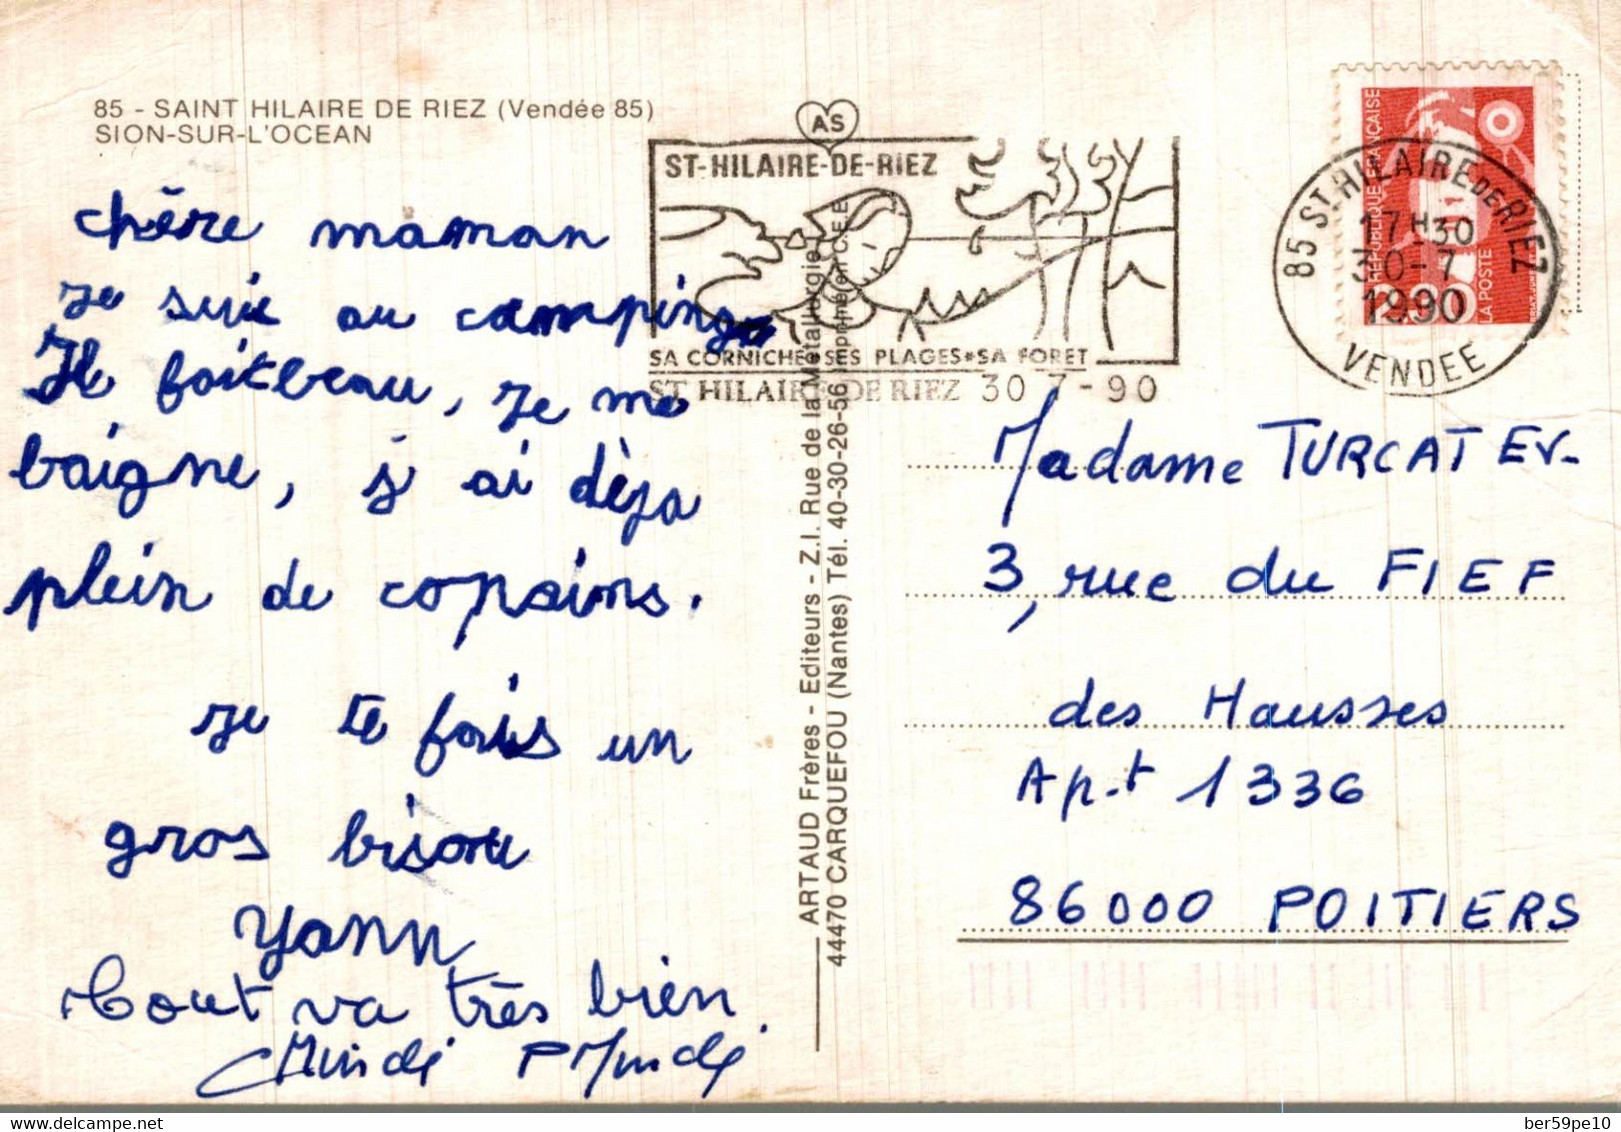 85 - SAINT HILAIRE DE RIEZ (Vendée 85)
SION-SUR-L'OCEAN
chère maman
Je suis au camping
Il faitbeau, je me
baigne, j'ai dèja
plein de copains.
Je te fais un
gros bisou
Yann
Tout va très bien.
AS
ST-HILAIRE-DE-RIEZ
SA CORNICHE SES PLAGES SA FORET
ST HILAIRE DE RIEZ 30 7 - 90
ARTAUD Frères - Editeurs - Z.I. Rue de la Métallurgie
44470 CARQUEFOU (Nantes) Tél. 40-30-26-56 Imprimé en C.E.E.
RÉPUBLIQUE FRANÇAISE
LA POSTE
85 ST HILAIRE DE RIEZ
17H30
30-7
1990
VENDEE
Madame TURCAT EV-
3, rue du FIEF
des Hausses
Apt 1336
86000 POITIERS
delcampe.net
ber59pe10